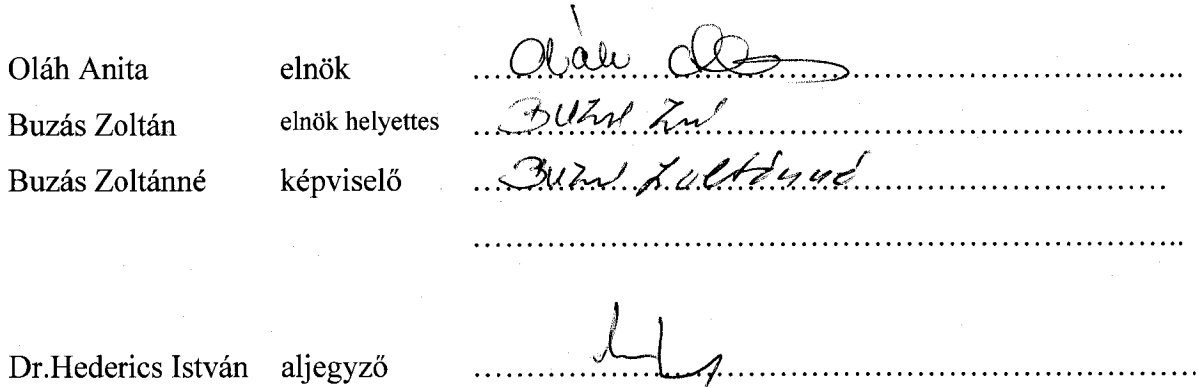 Oláh Anita elnök ........ Oláh
Buzás Zoltán elnök helyettes ........
Buzás Zoltánné képviselő ........ Zoltánné
........
Dr.Hederics István aljegyző ........